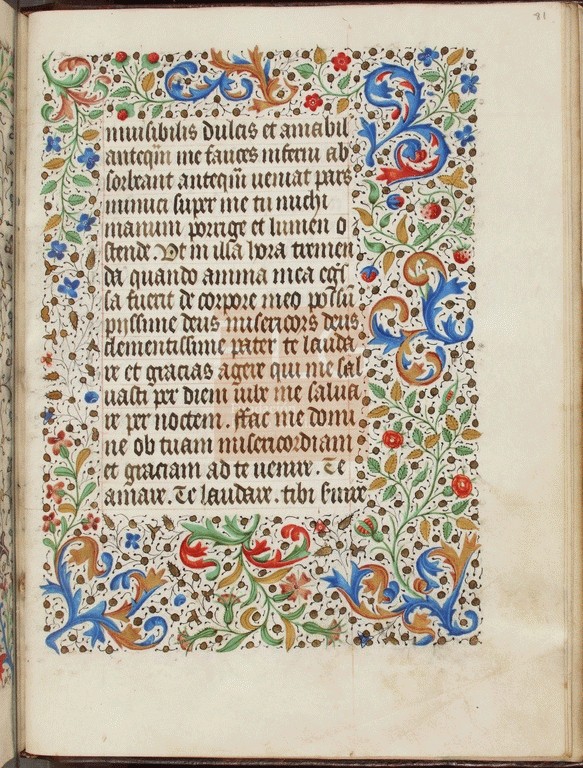 81
miusibilis dulcis et amabil
anteqm me fauces inferni ab
sorbeant anteqm ueniat pars
inimici super me tu michi
manum porrige et lumen o
stende. Vt in illa hora tremen
da quando anima mea egres
sa fuerit de corpore meo possu
piissime deus misericors deus
clementissime pater te lauda
re et gracias agere qui me sal
uasti per diem iube me salua
re per noctem. ffac me domi
ne ob tuam misericordiam
et graciam ad te uenire. Te
amare. Te laudare. tibi